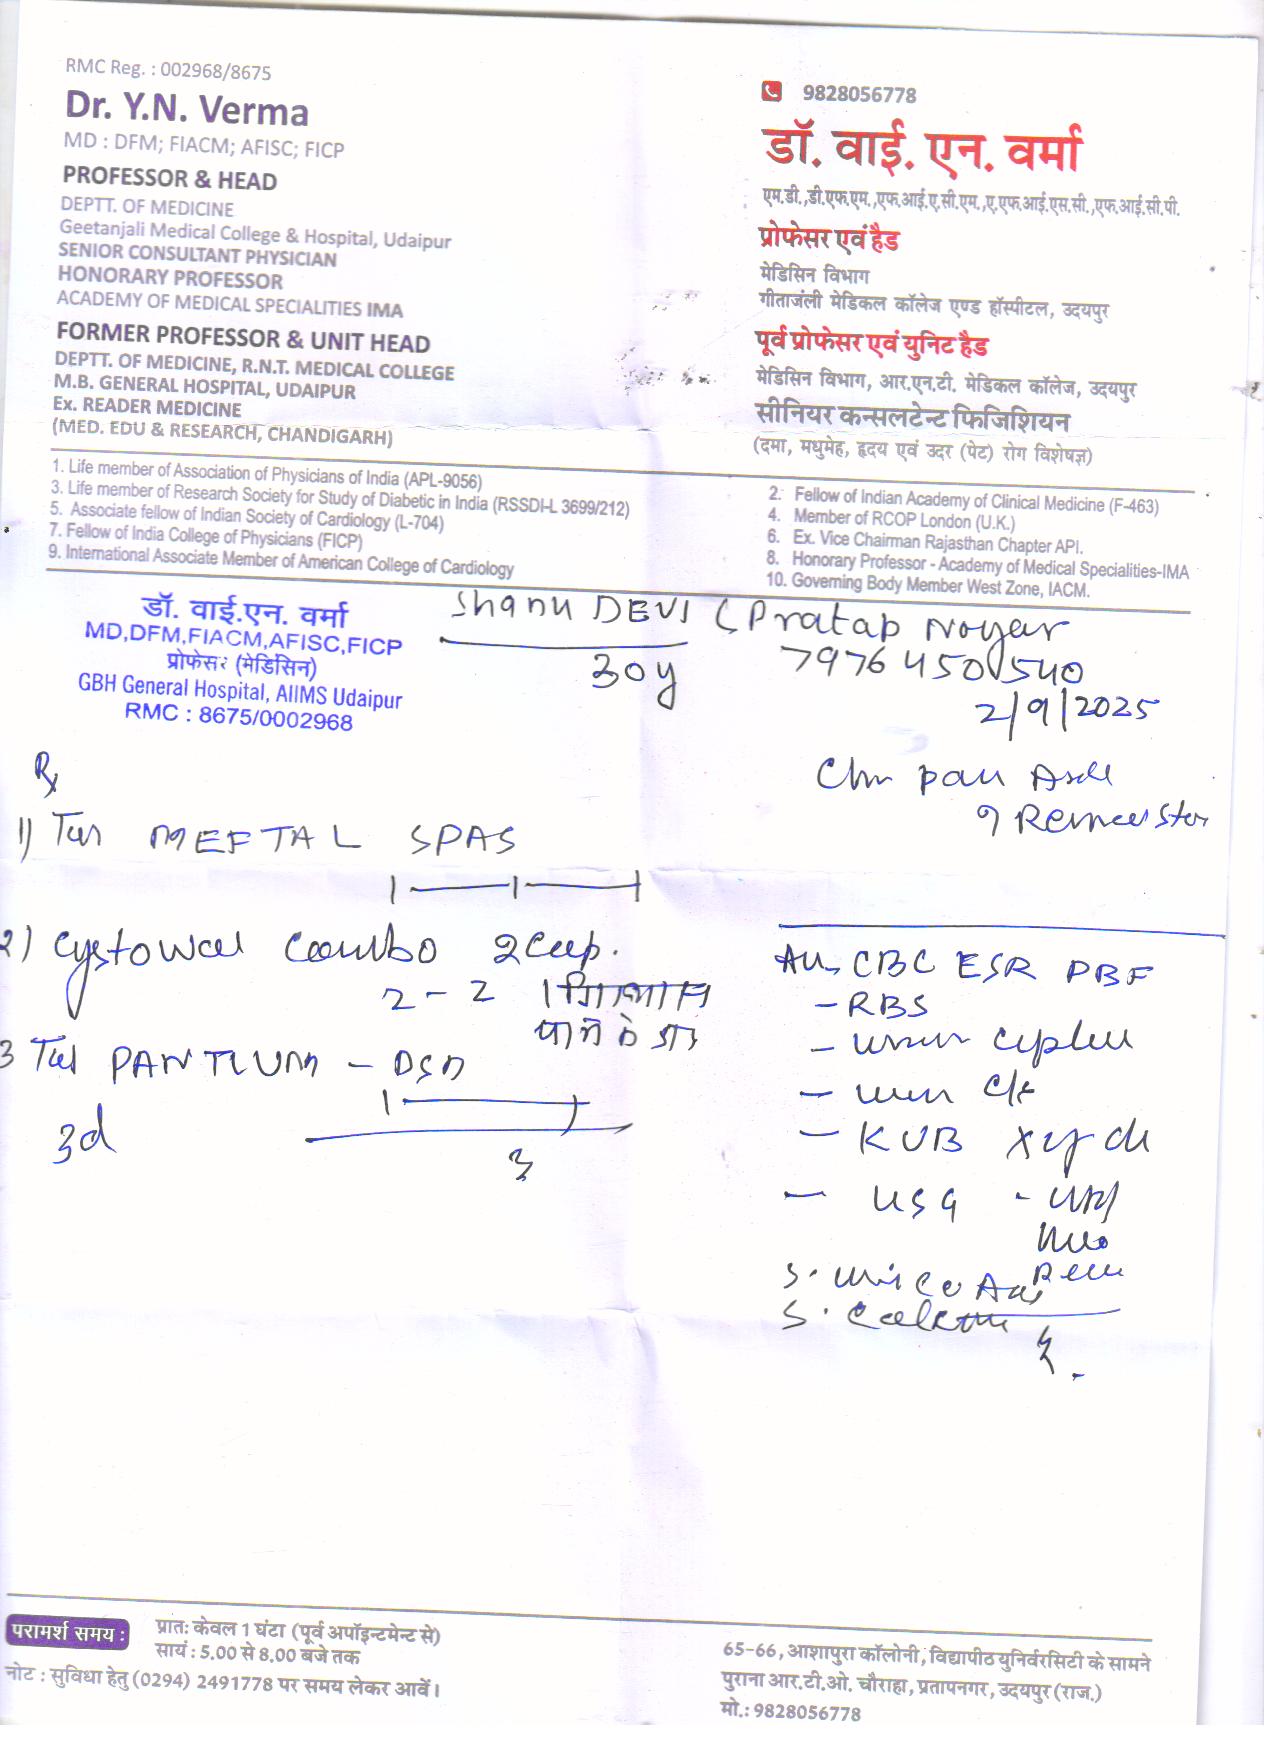 RMC Reg. : 002968/8675
Dr. Y.N. Verma
MD : DFM; FIACM; AFISC; FICP
PROFESSOR & HEAD
DEPTT. OF MEDICINE
Geetanjali Medical College & Hospital, Udaipur
SENIOR CONSULTANT PHYSICIAN
HONORARY PROFESSOR
ACADEMY OF MEDICAL SPECIALITIES IMA
FORMER PROFESSOR & UNIT HEAD
DEPTT. OF MEDICINE, R.N.T. MEDICAL COLLEGE
M.B. GENERAL HOSPITAL, UDAIPUR
Ex. READER MEDICINE
(MED. EDU & RESEARCH, CHANDIGARH)
9828056778
डॉ. वाई. एन. वर्मा
एम.डी.,डी.एफ.एम.,एफ.आई.ए.सी.एम.,ए.एफ.आई.एस.सी.,एफ.आई.सी.पी.
प्रोफेसर एवं हैड
मेडिसिन विभाग
गीताजंली मेडिकल कॉलेज एण्ड हॉस्पीटल, उदयपुर
पूर्व प्रोफेसर एवं युनिट हैड
मेडिसिन विभाग, आर.एन.टी. मेडिकल कॉलेज, उदयपुर
सीनियर कन्सलटेन्ट फिजिशियन
(दमा, मधुमेह, हृदय एवं उदर (पेट) रोग विशेषज्ञ)
1. Life member of Association of Physicians of India (APL-9056)
2. Fellow of Indian Academy of Clinical Medicine (F-463)
3. Life member of Research Society for Study of Diabetic in India (RSSDI-L 3699/212)
4. Member of RCOP London (U.K.)
5. Associate fellow of Indian Society of Cardiology (L-704)
6. Ex. Vice Chairman Rajasthan Chapter API.
7. Fellow of India College of Physicians (FICP)
8. Honorary Professor - Academy of Medical Specialities-IMA
9. International Associate Member of American College of Cardiology
10. Governing Body Member West Zone, IACM.
डॉ. वाई.एन. वर्मा
MD,DFM,FIACM,AFISC,FICP
प्रोफेसर (मेडिसिन)
GBH General Hospital, AIIMS Udaipur
RMC : 8675/0002968
Shanu DEVI (Pratap Nagar
30y 7976450540
2/9/2025
℞
1) MEFTAL SPAS
2) Combo 2 Cap.
2 - 2 1 गिलास
3 PANTIUM - DSR
3d
3
CBC ESR PBF
- RBS
- C/S
- KUB
- USG
S.
S.
परामर्श समय :
प्रात: केवल 1 घंटा (पूर्व अपॉइन्टमेन्ट से)
सायं : 5.00 से 8.00 बजे तक
नोट : सुविधा हेतु (0294) 2491778 पर समय लेकर आवें।
65-66, आशापुरा कॉलोनी, विद्यापीठ युनिर्वरसिटी के सामने
पुराना आर.टी.ओ. चौराहा, प्रतापनगर, उदयपुर (राज.)
मो.: 9828056778